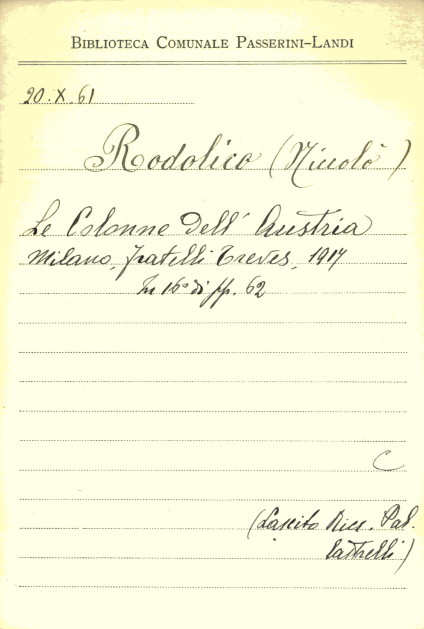 BIBLIOTECA COMUNALE PASSERINI-LANDI
20.X.61
Rodolico (Niccolò)
Le Colonne dell' Austria
Milano, Fratelli Treves, 1917
In 16° di pp. 62
C
(Lascito Ricc. Pal.
lastrelli)